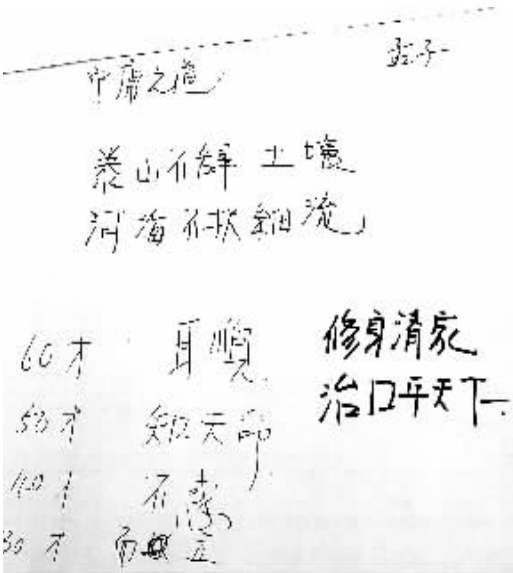 孟子
中庸之道
泰山不辞土壌
河海不択細流」
60才 耳順
50才 知天命
40才 不惑
30才 而立
修身清家
治口平天下